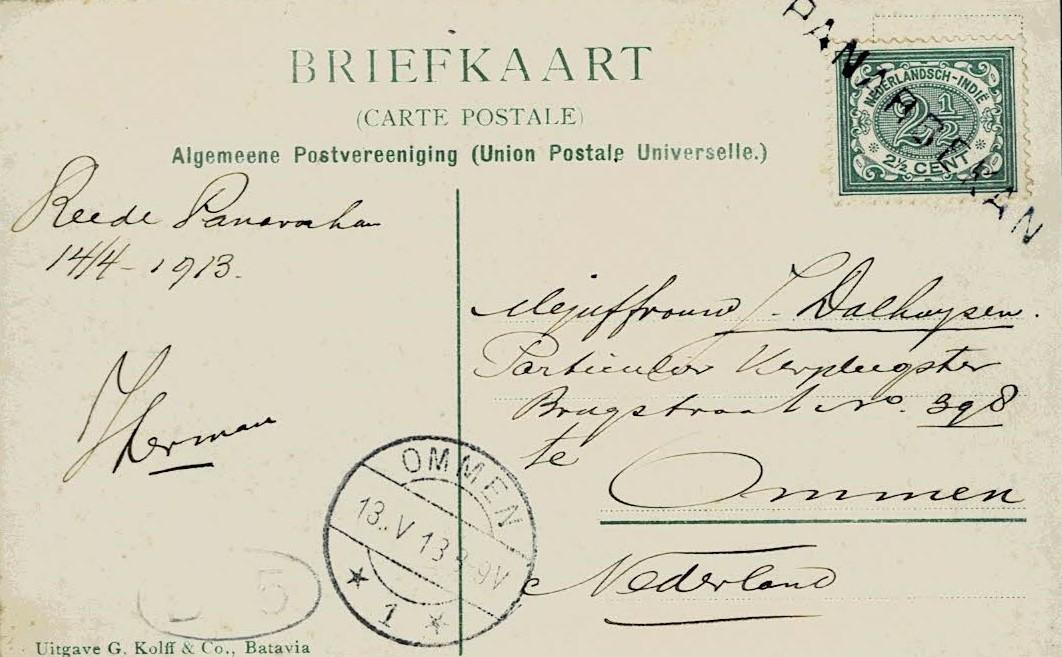 BRIEFKAART
(CARTE POSTALE)
Algemeene Postvereeniging (Union Postale Universelle.)
PANAROEKAN
NEDERLANDSCH-INDIË
2½
2½ CENT
Reede Panarukan
14/4 - 1913.
Herman
Mejuffrouw J. Dalhuysen.
Particulier Verpleegster
Brugstraat No. 398
te
Ommen
Nederland
OMMEN
13.V 13 8-9V
1
5
Uitgave G. Kolff & Co., Batavia